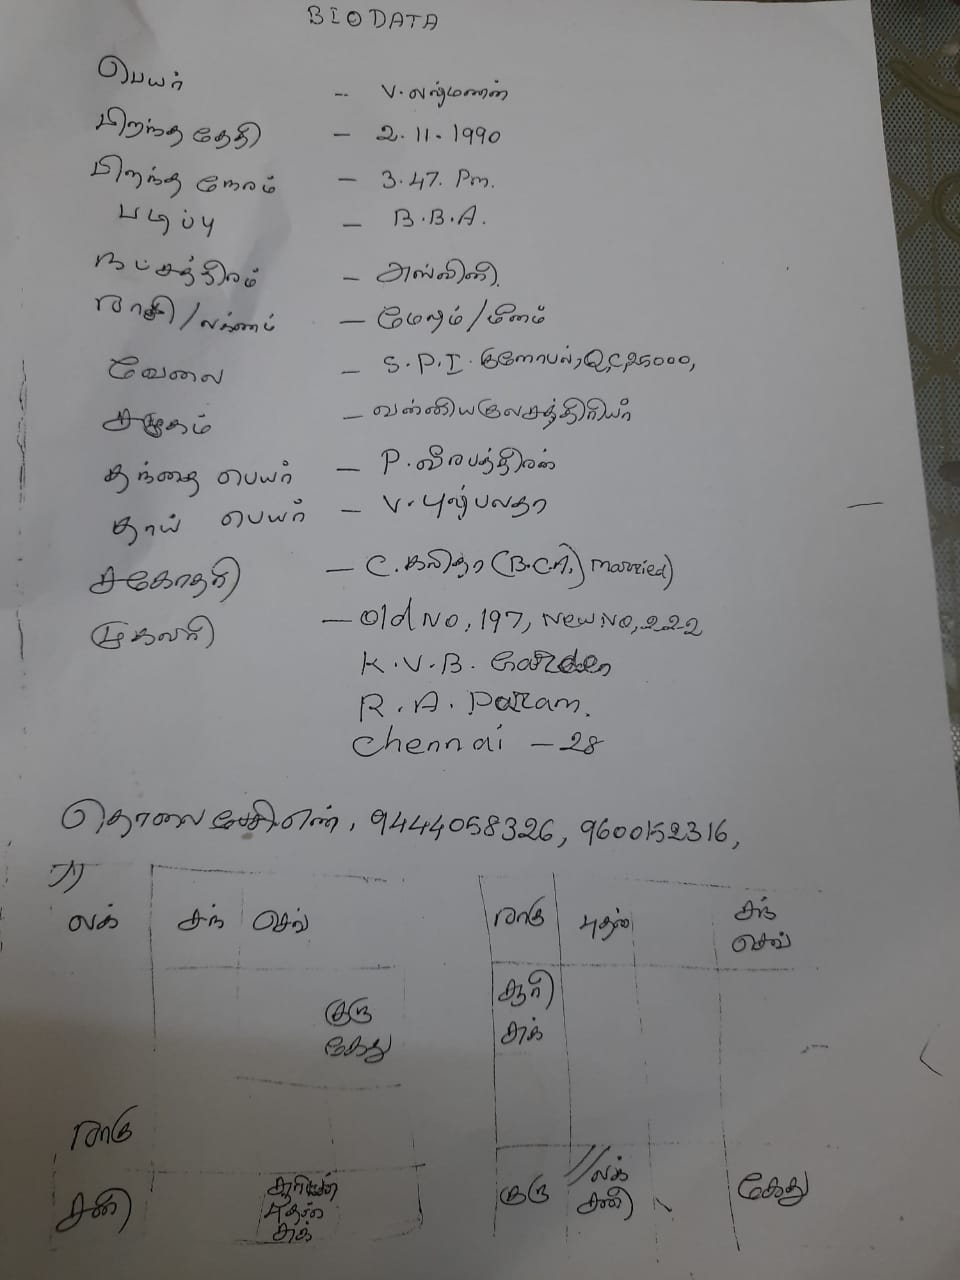 BIO DATA
பெயர் - V. லஷ்மணன்
பிறந்த தேதி - 2.11.1990
பிறந்த நேரம் - 3.47. Pm.
படிப்பு - B.B.A.
நட்சத்திரம் - அஸ்வினி
ராசி/லக்ணம் - மேஷம்/மீனம்
வேலை - S.P.I. குளோபல், 25000,
சமூகம் - வன்னியகுலசத்திரியர்
தந்தை பெயர் - P. வீரபத்திரன்
தாய் பெயர் - V. புஷ்பலதா
சகோதரி - C. கவிதா (B.C.A,) married)
முகவரி - Old No, 197, New No, 222
K.V.B. Garden
R.A. Puram.
Chennai - 28
தொலைபேசி எண், 9444058326, 9600152316,
லக் சந் செவ்
குரு
கேது
ராகு
சனி சூரியன்
புதன்
சுக்
ராகு புதன் சந்
செவ்
சூரி
சுக்
குரு லக்
சனி கேது